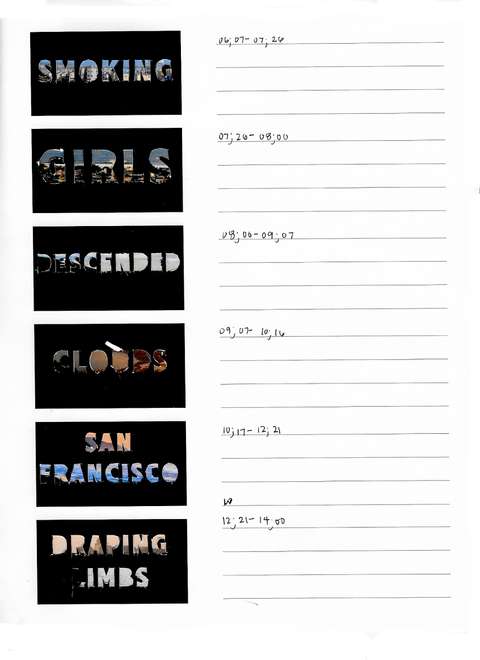 SMOKING
06;07-07;26
GIRLS
07;26-08;00
DESCENDED
08;00-09;07
CLOUDS
09;07-10;16
SAN
FRANCISCO
10;17-12;21
DRAPING
LIMBS
12;21-14;00